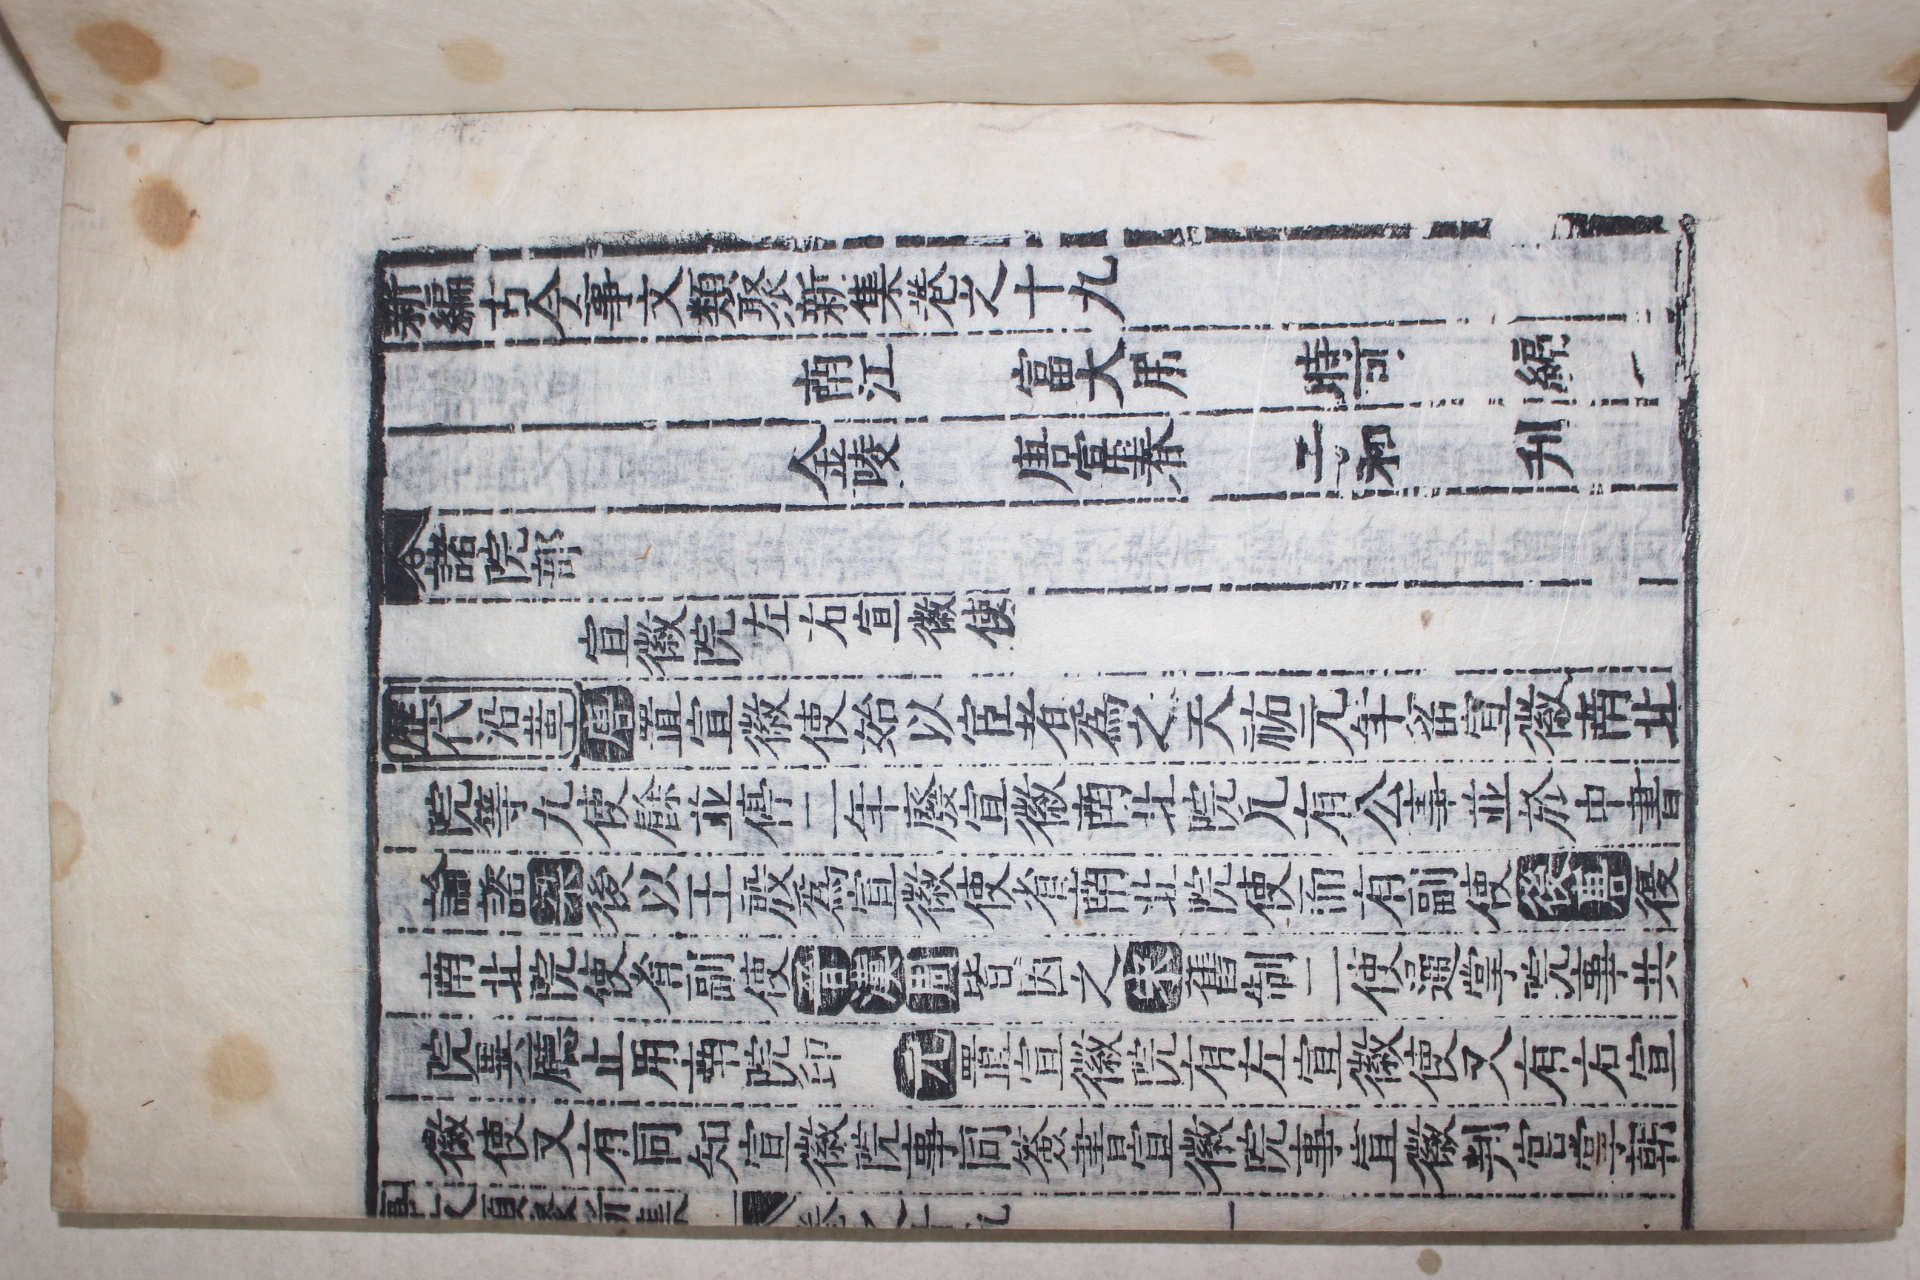 新編古今事文類聚新集卷之十九
南江 富大用 時可 編
金陵 唐富春 子和 刋
諸院部
宣徽院左右宣徽使
歷代沿革 唐置宣徽使始以宦者爲之天祐元年留宣徽南北
院等九使餘並停二年廢宣徽南北院凡有公事並於中書
論諮 梁後以王殷爲宣徽使省南北院使而有副使 後唐復
南北院使省副使 晉漢周皆因之 宋舊制二使通掌院事共
院異廳止用南院印 元置宣徽院有左宣徽使又有右宣
徽使又有同知宣徽院事同僉書宣徽院事宣徽判官掌朝